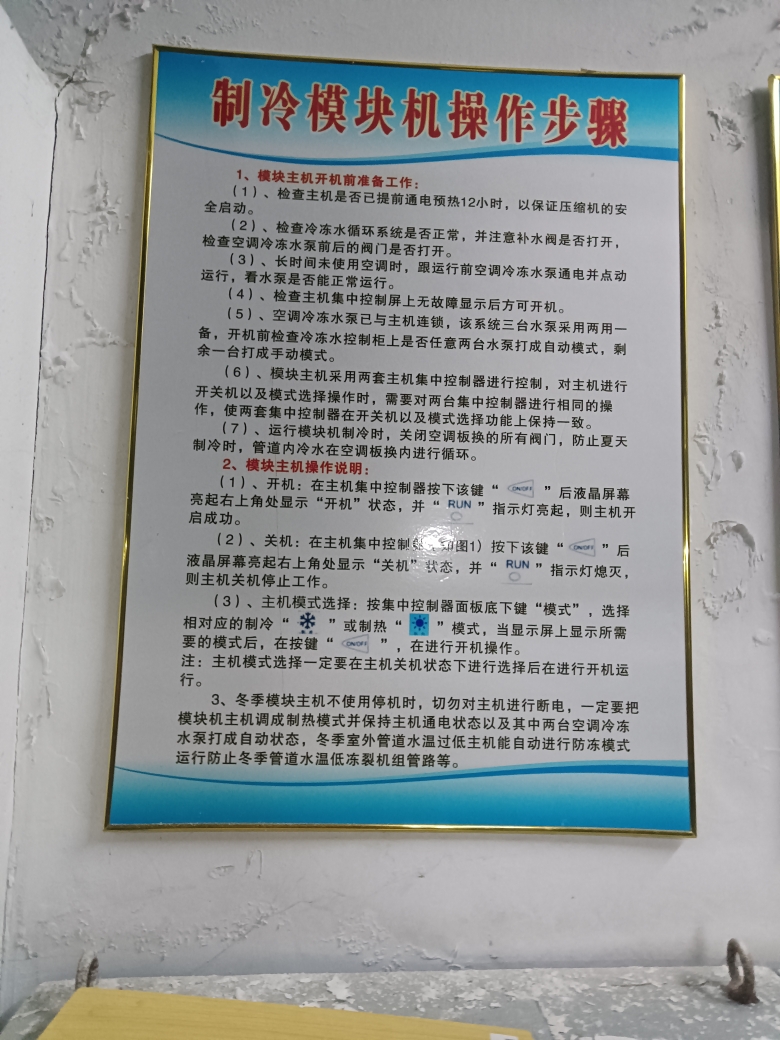 制冷模块机操作步骤
1、模块主机开机前准备工作：
（1）、检查主机是否已提前通电预热12小时，以保证压缩机的安
全启动。
（2）、检查冷冻水循环系统是否正常，并注意补水阀是否打开，
检查空调冷冻水泵前后的阀门是否打开。
（3）、长时间未使用空调时，跟运行前空调冷冻水泵通电并点动
运行，看水泵是否能正常运行。
（4）、检查主机集中控制屏上无故障显示后方可开机。
（5）、空调冷冻水泵已与主机连锁，该系统三台水泵采用两用一
备，开机前检查冷冻水控制柜上是否任意两台水泵打成自动模式，剩
余一台打成手动模式。
（6）、模块主机采用两套主机集中控制器进行控制，对主机进行
开关机以及模式选择操作时，需要对两台集中控制器进行相同的操
作，使两套集中控制器在开关机以及模式选择功能上保持一致。
（7）、运行模块机制冷时，关闭空调板换的所有阀门，防止夏天
制冷时，管道内冷水在空调板换内进行循环。
2、模块主机操作说明：
（1）、开机：在主机集中控制器按下该键“ ON/OFF ”后液晶屏幕
亮起右上角处显示“开机”状态，并“ RUN ”指示灯亮起，则主机开
启成功。
（2）、关机：在主机集中控制器（如图1）按下该键“ ON/OFF ”后
液晶屏幕亮起右上角处显示“关机”状态，并“ RUN ”指示灯熄灭，
则主机关机停止工作。
（3）、主机模式选择：按集中控制器面板底下键“模式”，选择
相对应的制冷“ ”或制热“ ”模式，当显示屏上显示所需
要的模式后，在按键“ ON/OFF ”，在进行开机操作。
注：主机模式选择一定要在主机关机状态下进行选择后在进行开机运
行。
3、冬季模块主机不使用停机时，切勿对主机进行断电，一定要把
模块机主机调成制热模式并保持主机通电状态以及其中两台空调冷冻
水泵打成自动状态，冬季室外管道水温过低主机能自动进行防冻模式
运行防止冬季管道水温低冻裂机组管路等。